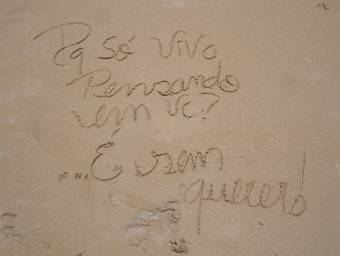 Pq só vivo
Pensando
em vc?
...É sem
querer!